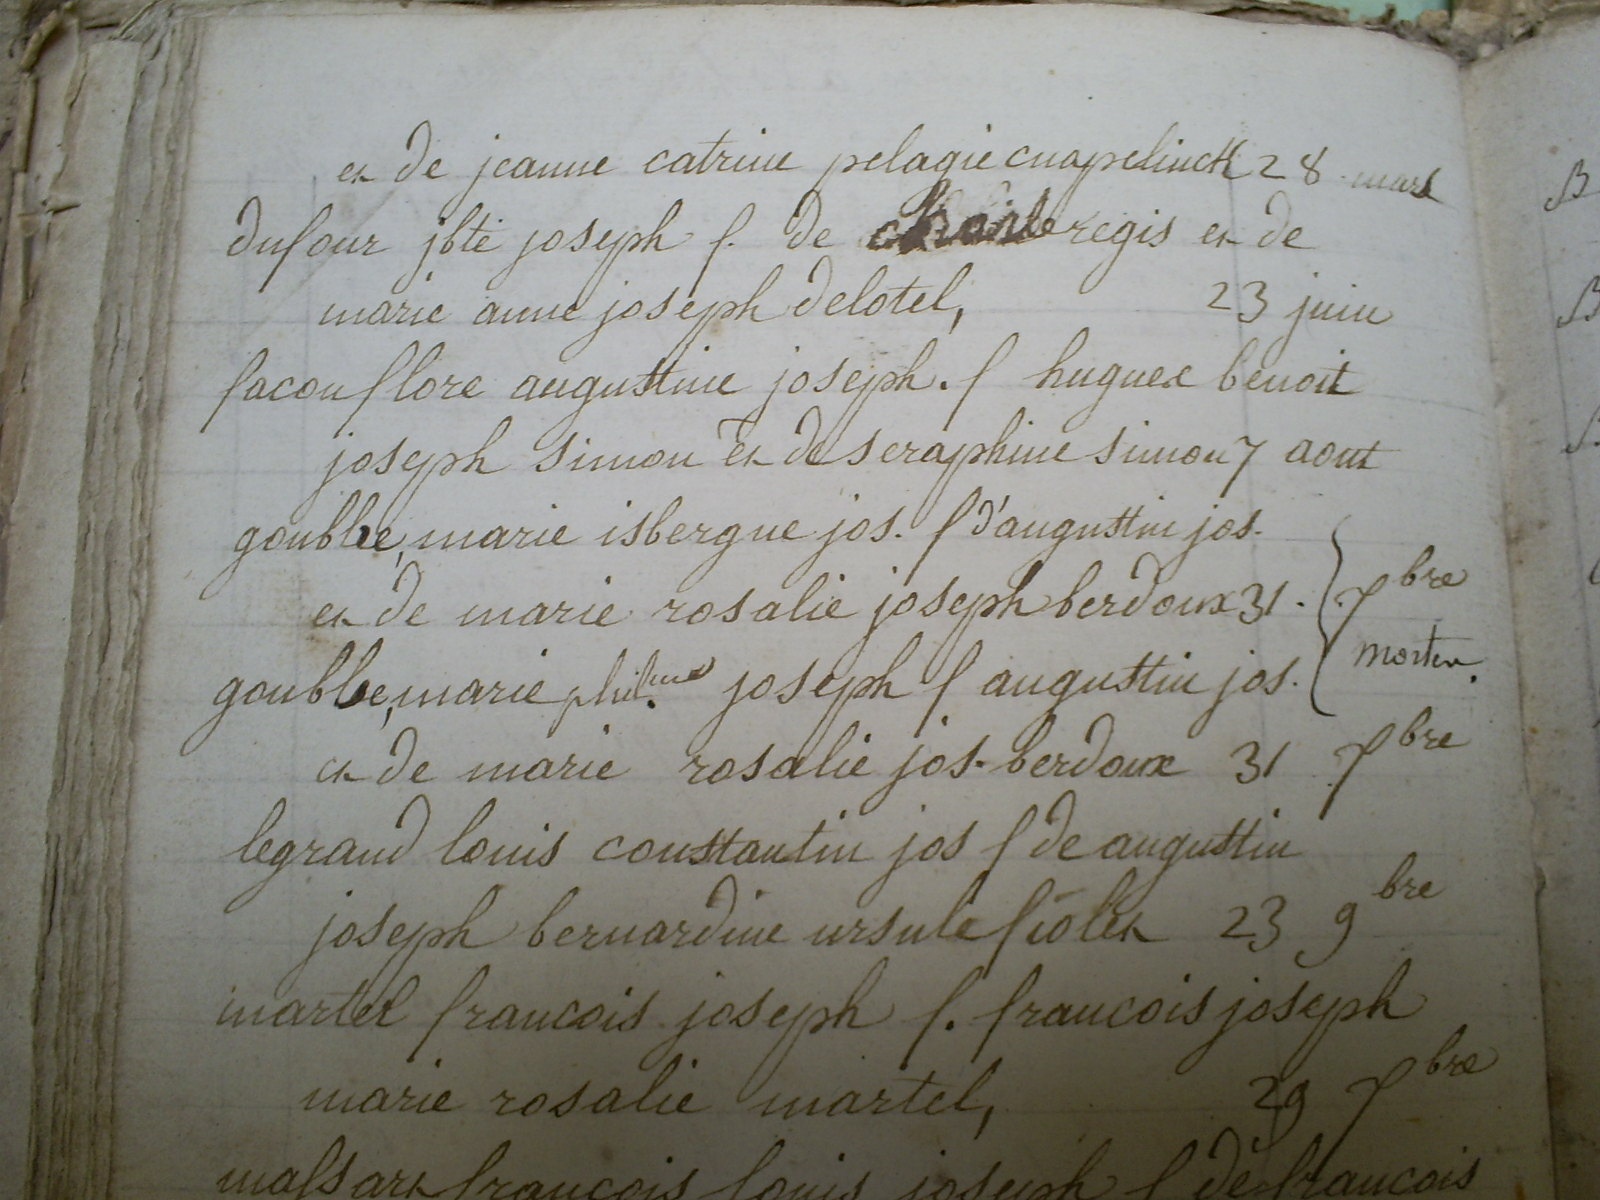 et de jeanne catrine pelagie cnapelinck 28 mars
dufour jbte joseph f. de regis et de
marie anne joseph delotel, 23 juin
facon flore augustine joseph. f hugues benoit
joseph simon et de seraphine simon 7 aout
goublee, marie isbergue jos. f d'augustin jos.
et de marie rosalie joseph berdoux 31. 7bre
goublee, marie joseph f augustin jos.
et de marie rosalie jos. berdoux 31 7bre
legrand louis constantin jos f de augustin
joseph bernardine ursule fiolet 23 9bre
martel francois joseph f. francois joseph
marie rosalie martel, 29 7bre
francois louis joseph f de francois
B
B